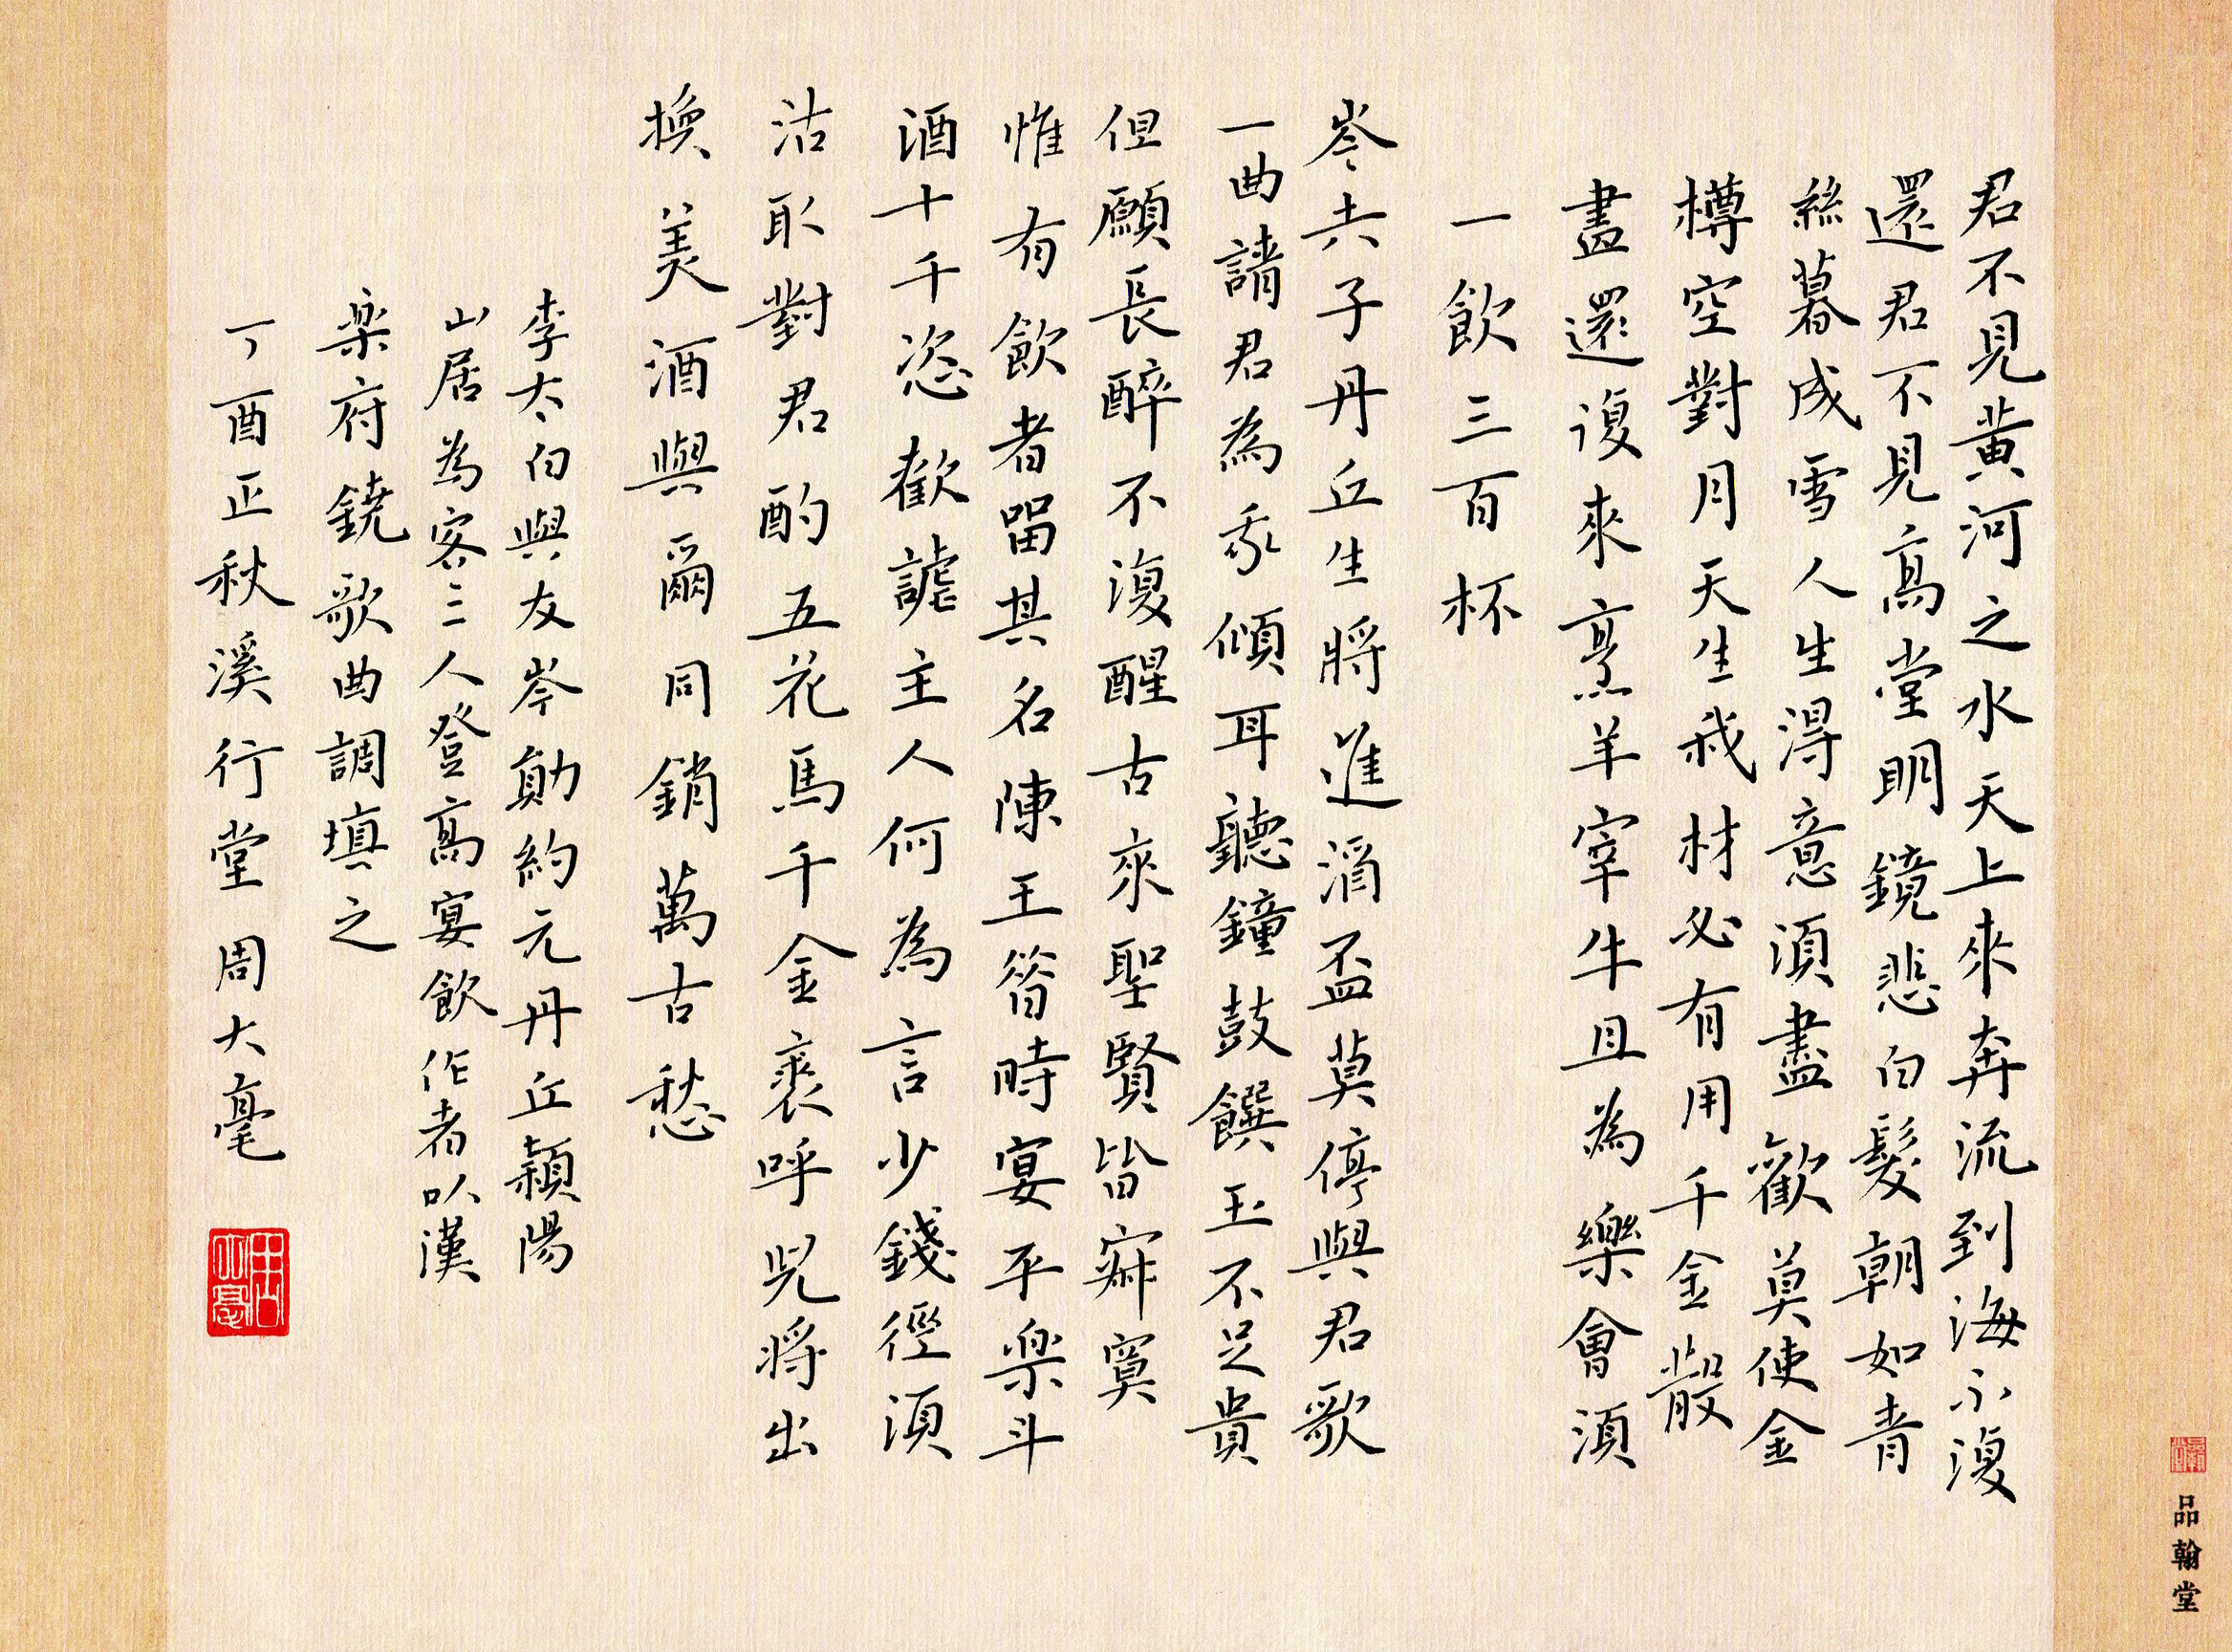 君不見黄河之水天上來奔流到海不復
還君不見高堂明鏡悲白髮朝如青
絲暮成雪人生得意須盡歡莫使金
樽空對月天生我材必有用千金散
盡還復來烹羊宰牛且為樂會須
一飲三百杯
岑夫子丹丘生將進酒盃莫停與君歌
一曲請君為我傾耳聽鐘鼓饌玉不足貴
但願長醉不復醒古來聖賢皆寂寞
惟有飲者留其名陳王昔時宴平楽斗
酒十千恣歡謔主人何為言少錢徑須
沽取對君酌五花馬千金裘呼兒將出
換美酒與爾同銷萬古愁
李太白與友岑勛約元丹丘潁陽
山居為客三人登高宴飲作者以漢
楽府鐃歌曲調填之
丁酉正秋溪行堂 周大毫
周大毫
品翰堂